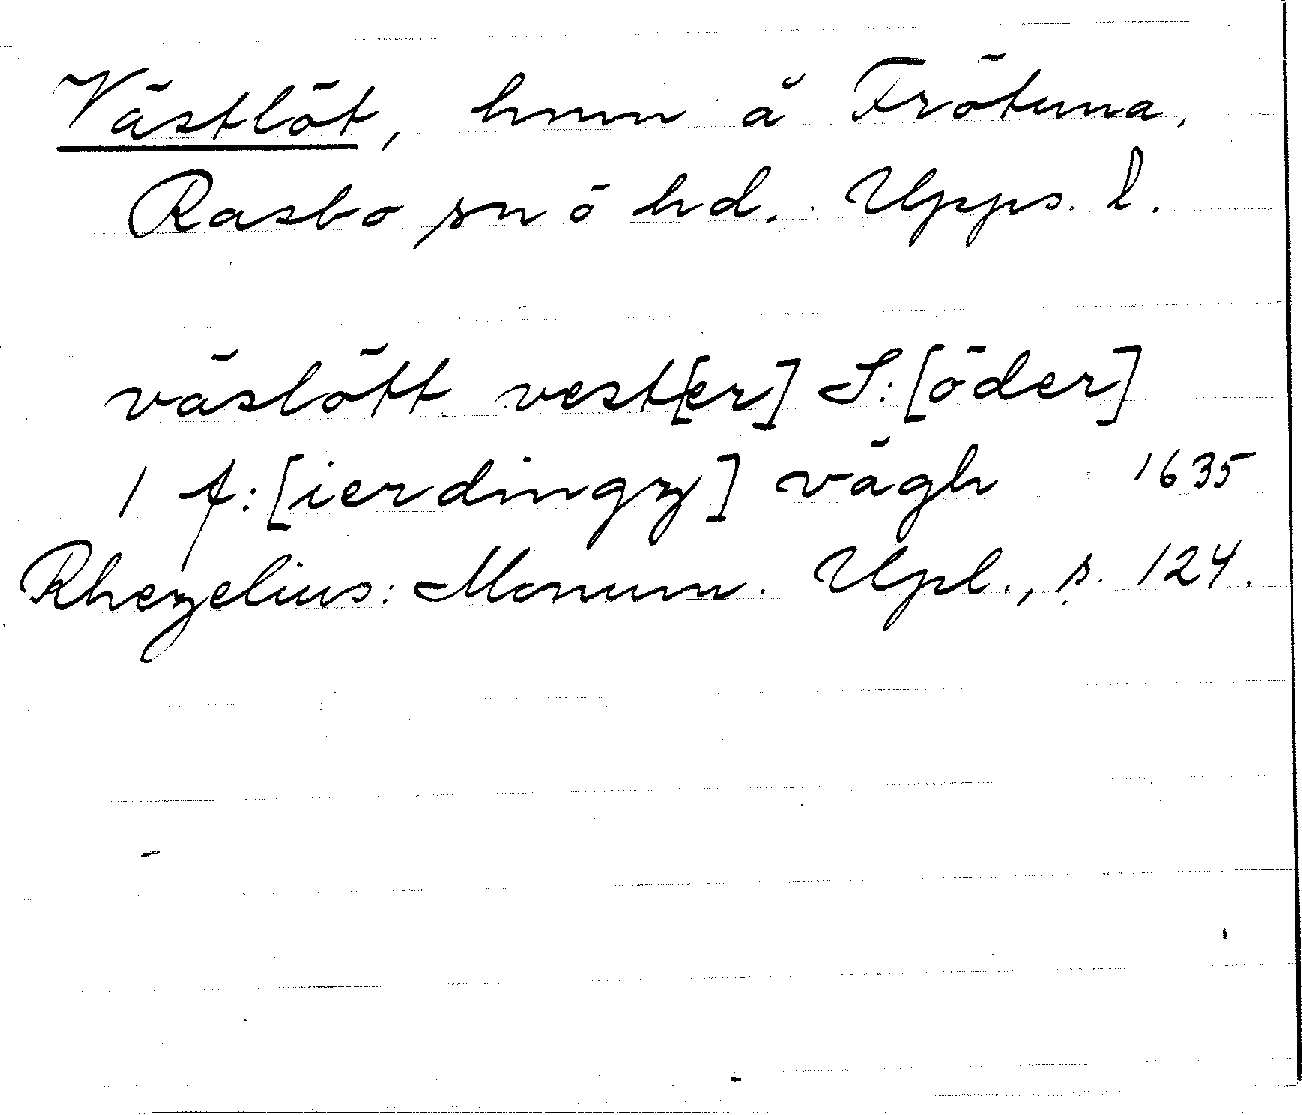 Västlöt, hmn å Frötuna,
Rasbo sn ö hd. Upps. l.
väslött vest[er] S:[öder]
1 f:[ierdingz] vägh 1635
Rhezelius: Monum. Upl., s. 124.